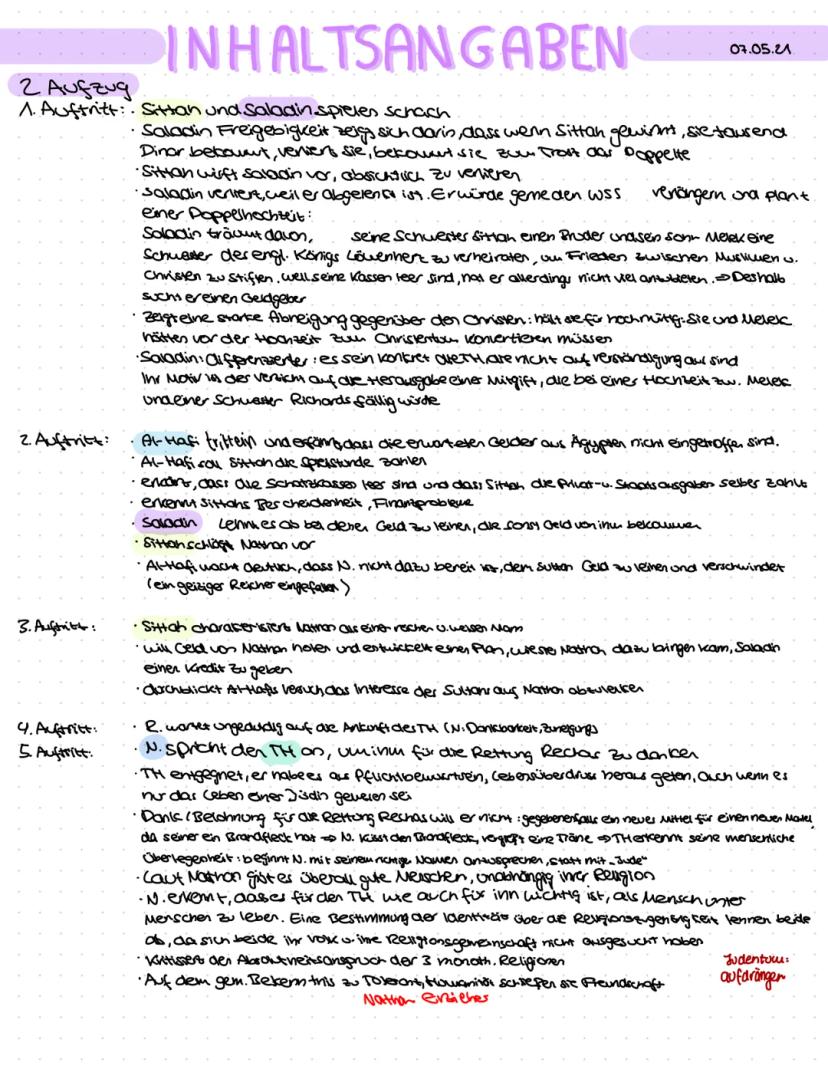 INHALTSANGABEN
07.05.21
2. Aufzug
1. Auftritt: · Sittah und Saladin spielen Schach
· Saladin Freigebigkeit zeigt sich darin, dass wenn Sittah gewinnt, sie tausend
Dinar bekommt, verliert sie, bekommt sie zum Trost das Doppelte
· Sittah wirft Saladin vor, absichtlich zu verlieren
· Saladin verliert, weil er abgelenkt ist. Er würde gerne den WSS verlängern und plant
einer Doppelhochzeit:
Saladin träumt davon, seine Schwester Sittah einen Bruder und sein Sohn Melek eine
Schwester des engl. Königs Löwenherz zu verheiraten, um Frieden zwischen Muslimen u.
Christen zu stiften. Weil seine Kassen leer sind, hat er allerdings nicht viel anzubieten. ⇒ Deshalb
sucht er einen Geldgeber
· zeigt eine starke Abneigung gegenüber den Christen: hält sie für hochmütig: Sie und Melek
hätten vor der Hochzeit zum Christentum konvertieren müssen
· Saladin: differenzierter: es sein konkret die TH, die nicht auf Verständigung aus sind
Ihr Motiv ist der Verzicht auf die Herausgabe einer Mitgift, die bei einer Hochzeit zw. Melek
und einer Schwester Richards fällig würde
2. Auftritt: · Al-Hafi tritt ein und erfährt, dass die erwarteten Gelder aus Ägypten nicht eingetroffen sind.
· Al-Hafi soll Sittah die Spielstunde zahlen
· erklärt, dass die Schatzkassen leer sind und dass Sittah die Privat- u. Staatsausgaben selber zahlt
· erkennt Sittahs Bescheidenheit, Finanzprobleme
· Saladin lehnt es ab bei denen Geld zu leihen, die sonst Geld von ihm bekommen
· Sittah schlägt Nathan vor
· Al-Hafi macht deutlich, dass N. nicht dazu bereit ist, dem Sultan Geld zu leihen und verschwindet
(ein geiziger Reicher eingefallen)
3. Auftritt: · Sittah charakterisiert Nathan als einen reichen u. weisen Mann
· will Geld von Nathan holen und entwickelt einen Plan, wie sie Nathan dazu bringen kann, Saladin
einen Kredit zu geben
· durchblickt Al-Hafis Versuch, das Interesse des Sultans auf Nathan abzulenken
4. Auftritt: · R. wartet ungeduldig auf die Ankunft des TH (N: Dankbarkeit, Zuneigung)
5. Auftritt: · N. spricht den TH an, um ihm für die Rettung Rechas zu danken
· TH entgegnet, er habe es aus Pflichtbewusstsein, Lebensüberdruss heraus getan, auch wenn es
nur das Leben einer Jüdin gewesen sei
· Dank / Belohnung für die Rettung Rechas will er nicht: gegebenenfalls ein neues Mittel für einen neuen Mantel,
da seiner ein Brandfleck hat ⇒ N. küsst den Brandfleck, vergießt eine Träne ⇒ TH erkennt seine menschliche
Überlegenheit: beginnt N. mit seinem richtige Namen anzusprechen, statt mit „Jude“
· Laut Nathan gibt es überall gute Menschen, unabhängig ihrer Religion
· N. erkennt, dass es für den TH wie auch für ihn wichtig ist, als Mensch unter
Menschen zu leben. Eine Bestimmung der Identität über die Religionszugehörigkeit lehnen beide
ab, da sich beide ihr Volk u. ihre Religionsgemeinschaft nicht ausgesucht haben
· Kritisiert den Absolutheitsanspruch der 3 monoth. Religionen
· Auf dem gem. Bekenntnis zu Toleranz, Humanität schließen sie Freundschaft
Judentum:
aufdrängen
Nathan Erzieher